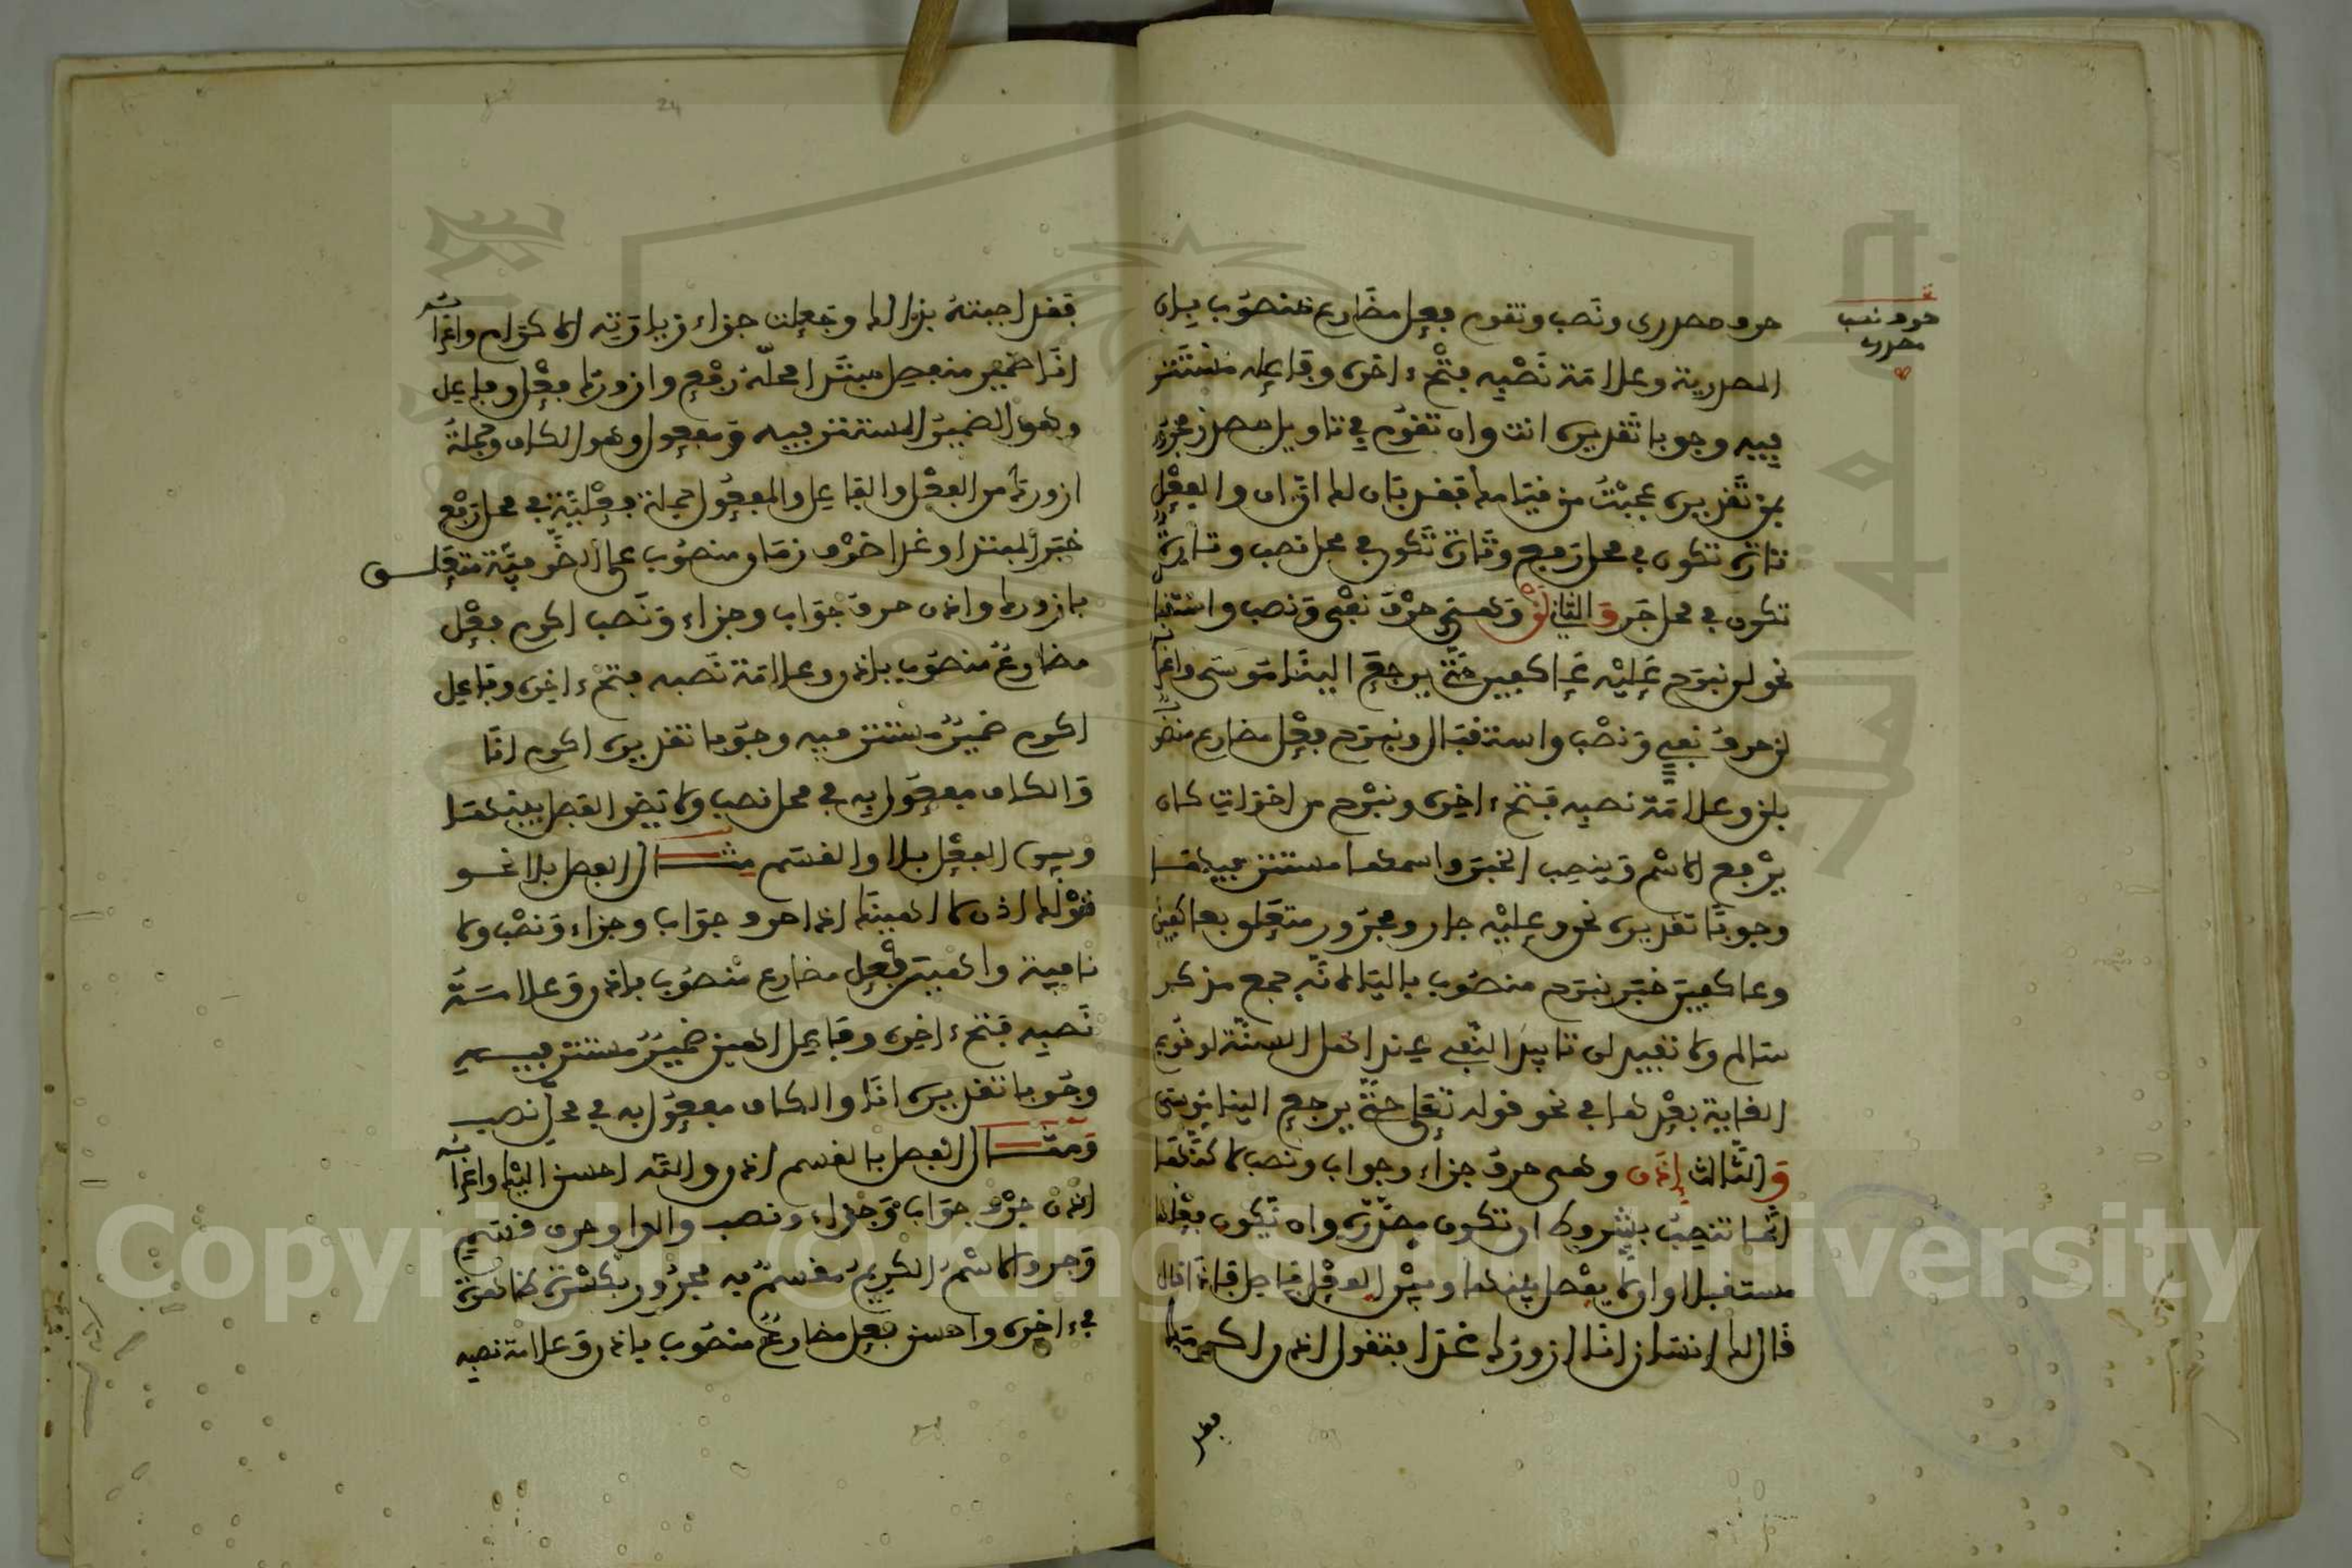 حرف مصدري ونصب وتقوم فعل مضارع منصوب بان
المصدرية وعلامة نصبه فتح ءاخره وفاعله مستتر
فيه وجوبا تقديره انت وان تقوم في تاويل مصدر مجرور
بمن تقديره عجبت من قيامك فقد بان لك ان ان والفعل
تارة تكون في محل رفع وتارة تكون في محل نصب وتارة
تكون في محل جر والثاني لن وهي حرف نفي ونصب واستقبال
نحو لن نبرح عليه عاكفين حتى يرجع الينا موسى واعرابه
لن حرف نفي ونصب واستقبال ونبرح فعل مضارع منصوب
بلن وعلامة نصبه فتح ءاخره ونبرح من اخوات كان
يرفع الاسم وينصب الخبر واسمها مستتر فيها
وجوبا تقديره نحن وعليه جار ومجرور متعلق بعاكفين
وعاكفين خبر نبرح منصوب بالياء لانه جمع مذكر
سالم ولا تفيد لن تابيد النفي عند اهل السنة لوقوع
الغاية بعدها في نحو قوله تعلى حتى يرجع الينا موسى
والثالث اذن وهي حرف جزاء وجواب ونصب لاكنها
انما تنصب بشروط ان تكون مصدرة وان يكون فعلها
مستقبلا وان لا يفصل بينها وبين الفعل فاصل فاذا قال
قال لك انسان انا ازورك غدا فتقول اذن اكرمك
فقد
حرف نصب
مصدري
24
فقد اجبته بذالك وجعلت جزاء زيارته الاكرام واعرابه
انا ضمير منفصل مبتدا محله رفع وازورك فعل وفاعل
وهو الضمير المستتر فيه ومفعول وهو الكاف وجملة
ازورك من الفعل والفاعل والمفعول جملة فعلية في محل رفع
خبر المبتدا وغدا ظرف زمان منصوب على الظرفية متعلق
بازورك واذن حرف جواب وجزاء ونصب اكرم فعل
مضارع منصوب باذن وعلامة نصبه فتح ءاخره وفاعل
اكرم ضمير مستتر فيه وجوبا تقديره اكرم انا
والكاف مفعول به في محل نصب ولا يضر الفصل بينها
وبين الفعل بلا والقسم مثال الفصل بلا نحو
قولك اذن لا اهينك اذن حرف جواب وجزاء ونصب ولا
نافية واهينك فعل مضارع منصوب باذن وعلامة
نصبه فتح ءاخره وفاعل اهين ضمير مستتر فيه
وجوبا تقديره انا والكاف مفعول به في محل نصب
ومثال الفصل بالقسم اذن والله احسن اليك واعرابه
اذن حرف جواب وجزاء ونصب والواو حرف قسم
وجر والاسم الكريم مقسم به مجرور بكسرة ظاهرة
في ءاخره واحسن فعل مضارع منصوب باذن وعلامة نصبه
Copyright © King Saud University